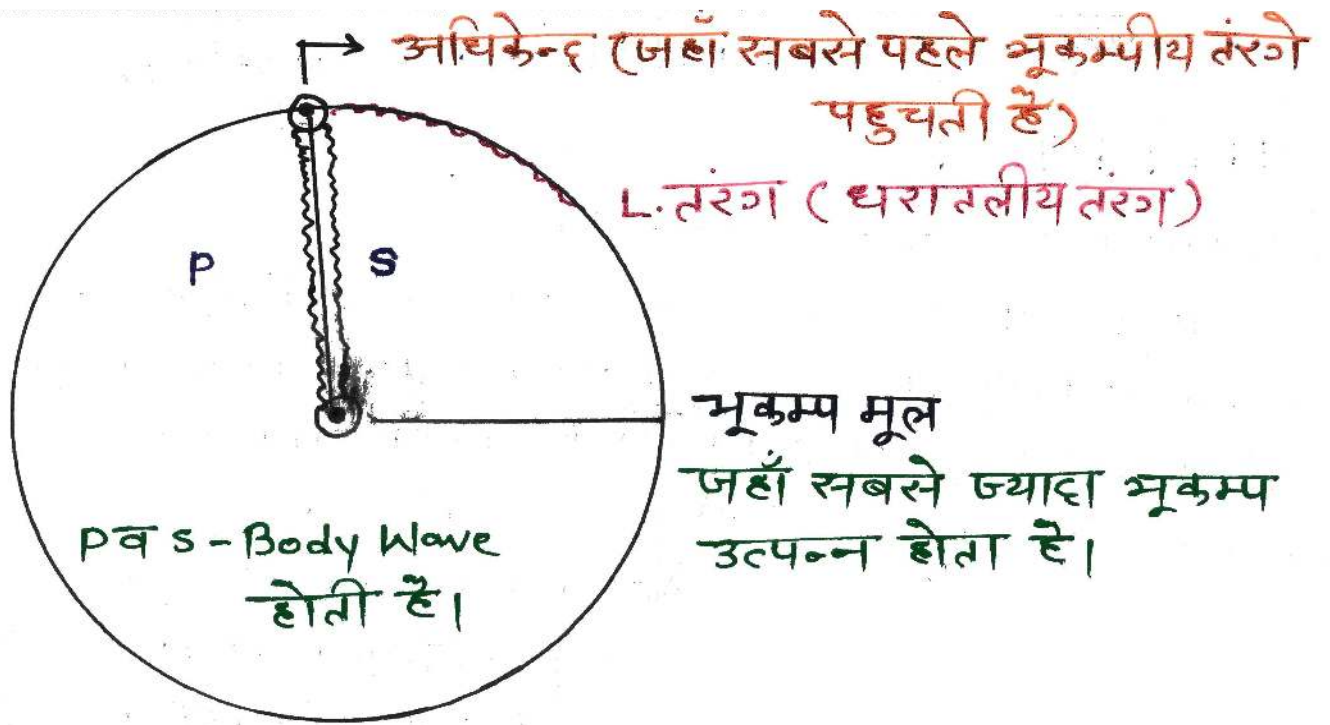 अधिकेन्द्र (जहाँ सबसे पहले भूकम्पीय तंरगे
पहुचती है)
L. तंरग (धरातलीय तंरग)
P
S
भूकम्प मूल
जहाँ सबसे ज्यादा भूकम्प
उत्पन्न होता है।
P व S - Body Wave
होती है।